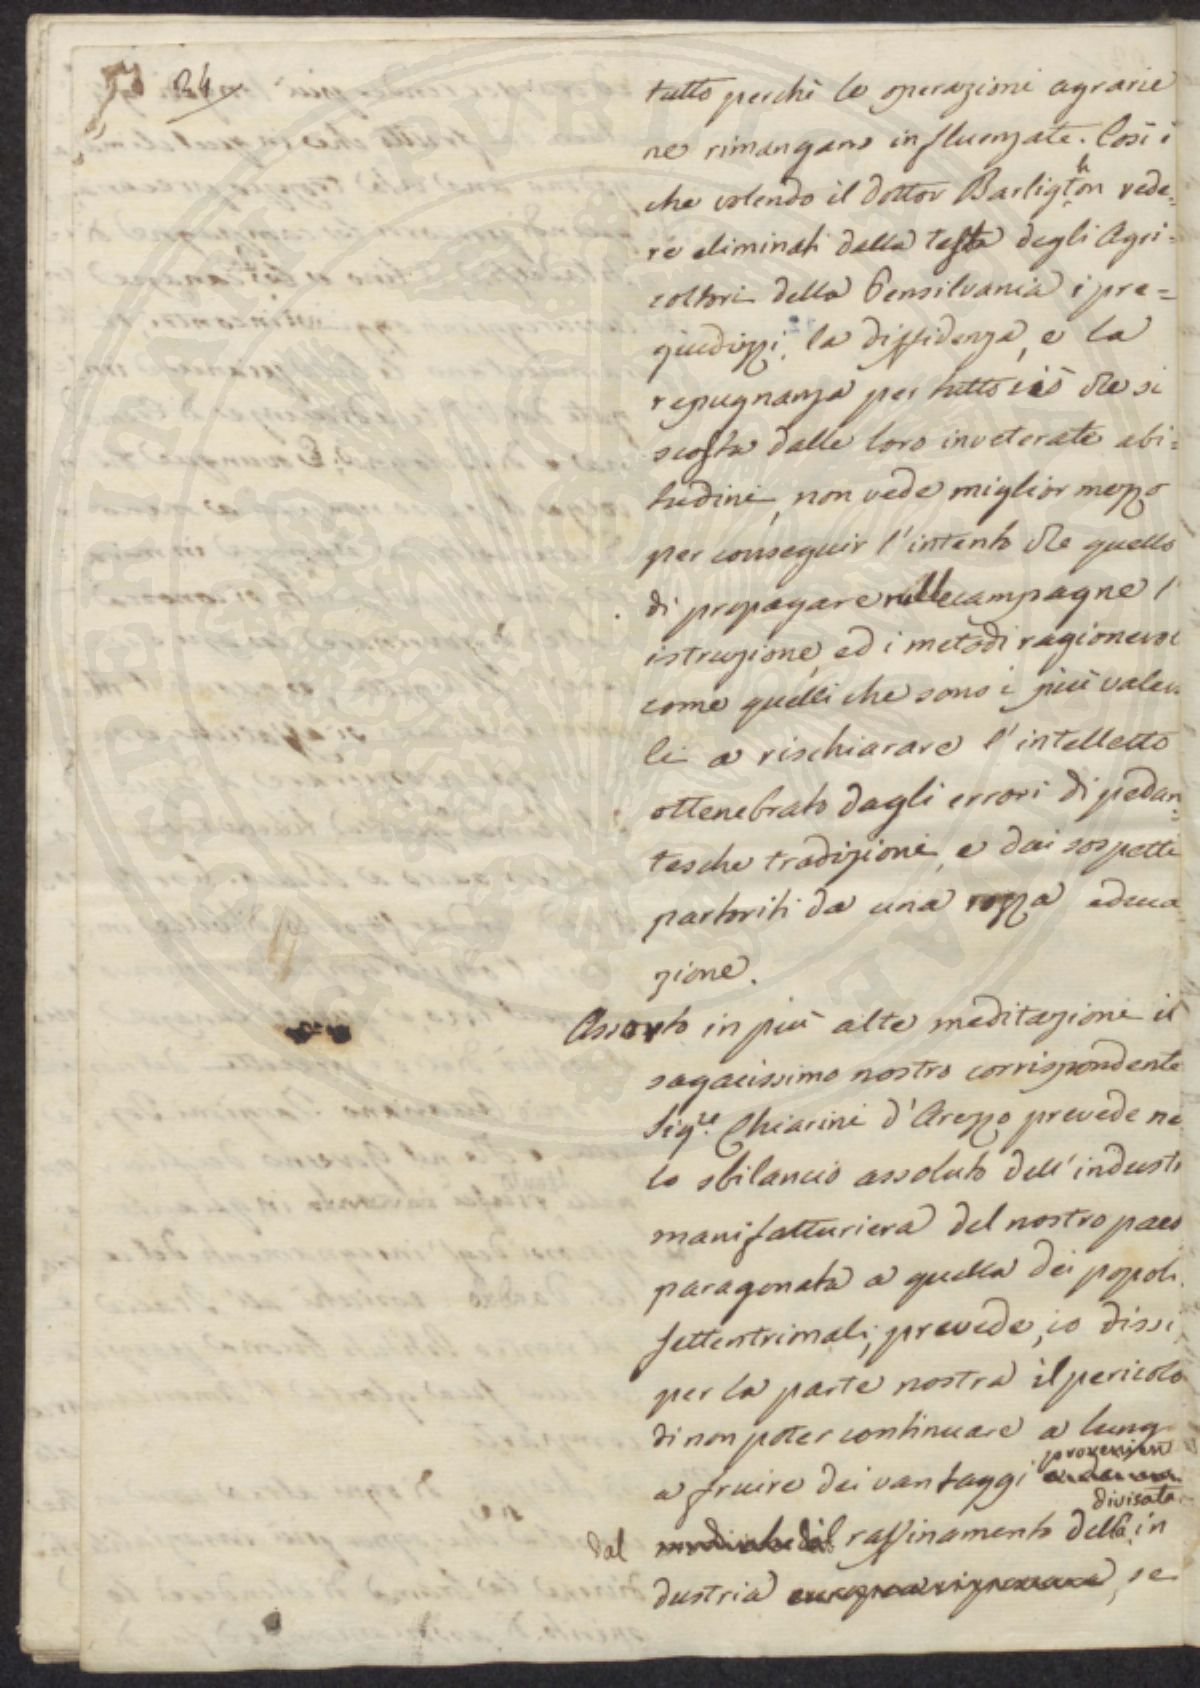 24
tutto perchè le operazioni agrarie
ne rimangano influenzate. Così i
che volendo il dottor Barligthon vede-
re eliminati dalla testa degli Agri-
coltori della Pensilvania i pre=
giudizzi, la diffidenza, e la
repugnanza per tutto ciò che si
scosta dalle loro inveterate abi=
tudini, non vede miglior mezzo
per conseguir l'intento che quello
di propagare nelle campagne l'
istruzione, ed i metodi ragionevol
come quelli che sono i più valev
li a rischiarare l'intelletto
ottenebrato dagli errori di pedan=
tesche tradizioni, e dai sospetti
partoriti da una rozza educa
zione.
Assorto in più alte meditazioni il
sagacissimo nostro corrispondente
Sigre. Chiarini d'Arezzo prevede ne
lo sbilancio assoluto dell'industr
manifatturiera del nostro paes
paragonata a quella dei popoli
settentrionali; prevede, io dissi,
per la parte nostra il pericolo
di non poter continuare a lung
provenien
a fruire dei vantaggi
divisata
dal raffinamento della in
dustria , se